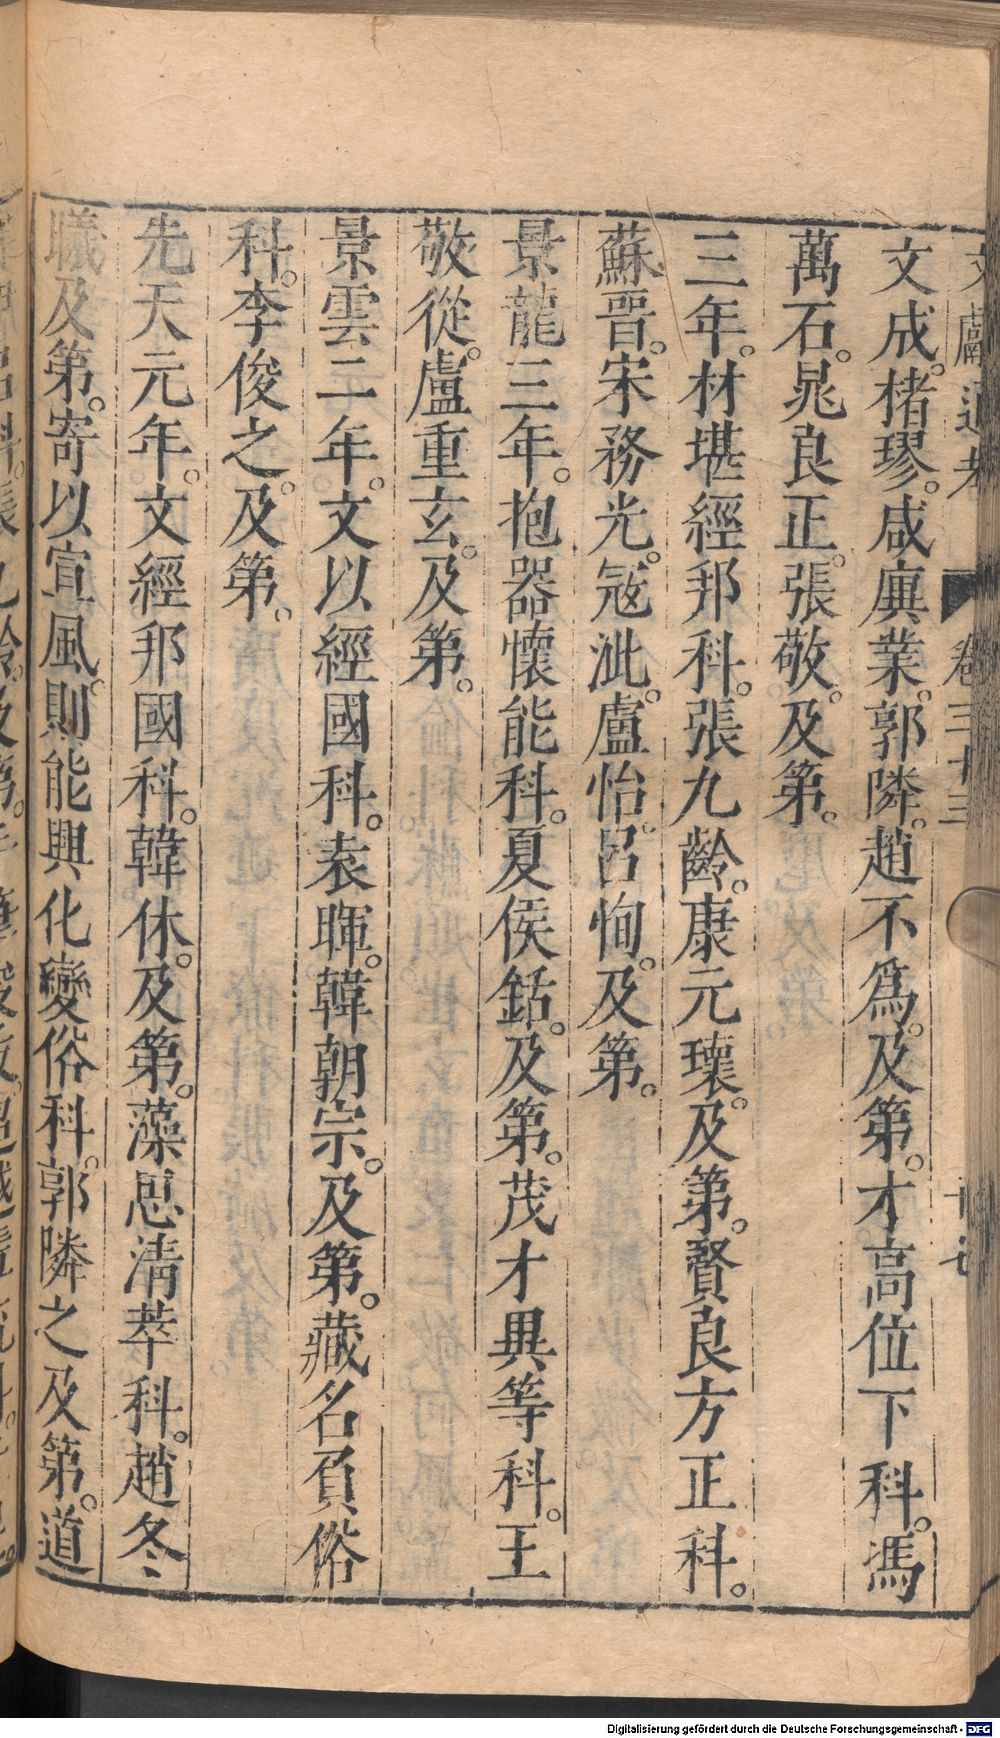 文獻通考 卷三十三
文成。楮璆。咸廙業。郭隣。趙不爲。及第。才高位下科。馮
萬石。晁良正。張敬。及第。
三年。材堪經邦科。張九齡。康元瓌。及第。賢良方正科。
蘇晉。宋務光。寇泚。盧怡。呂恂。及第。
景龍三年。抱器懷能科。夏侯銛。及第。茂才異等科。王
敬從。盧重玄。及第。
景雲二年。文以經國科。袁暉。韓朝宗。及第。藏名負俗
科。李俊之。及第。
先天元年。文經邦國科。韓休。及第。藻思清萃科。趙冬
曦及第。寄以宣風。則能興化變俗科。郭隣之及第。道
Digitalisierung gefördert durch die Deutsche Forschungsgemeinschaft - DFG